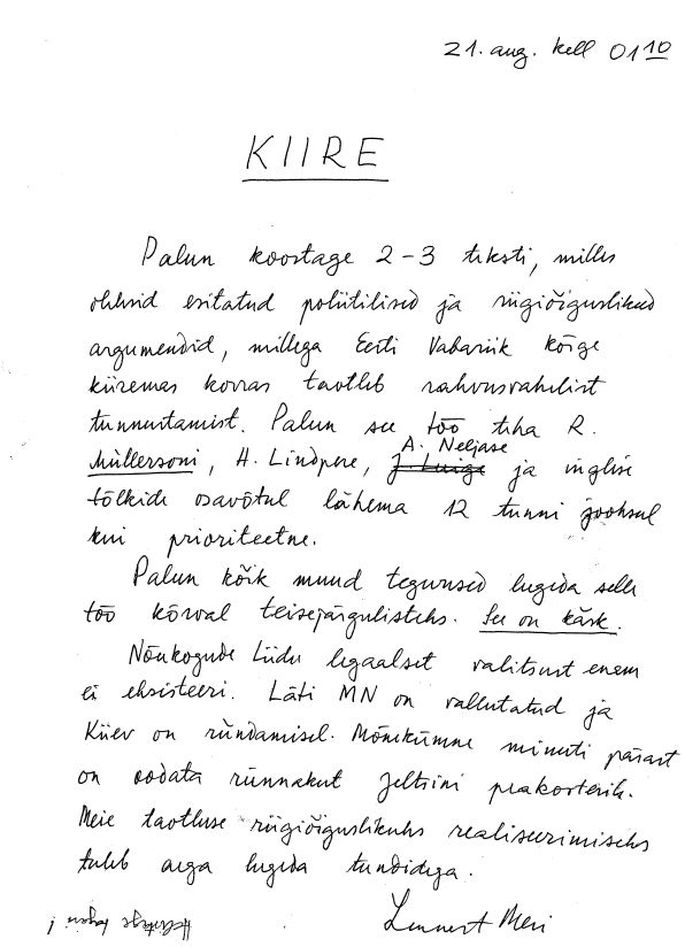 21. aug. kell 01 10
KIIRE
Palun koostage 2-3 teksti, milles
oleksid esitatud poliitilised ja riigiõiguslikud
argumendid, millega Eesti Vabariik kõige
kiiremas korras taotleb rahvusvahelist
tunnustamist. Palun see töö teha R.
A. Neljase
Müllersoni, H. Lindpere, J. Luige ja inglise
tõlkide osavõtul lähema 12 tunni jooksul
kui prioriteetne.
Palun kõik muud tegevused lugeda selle
töö kõrval teisejärgulisteks. See on käsk.
Nõukogude Liidu legaalset valitsust enam
ei eksisteeri. Läti MN on vallutatud ja
Kiiev on ründamisel. Mõnekümne minuti pärast
on oodata rünnakut Jeltsini peakorterile.
Meie taotluse riigiõiguslikuks realiseerimiseks
tuleb aega lugeda tundidega.
Lennart Meri
Helistage